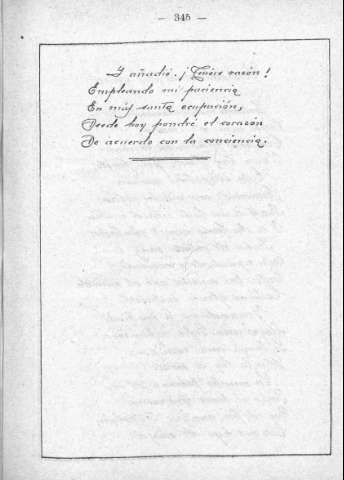 — 345 —
Y añadió. ¡Teneis razón!
Empleando mi paciencia
En muy santa ocupación,
Desde hoy pondré el corazón
De acuerdo con la conciencia.